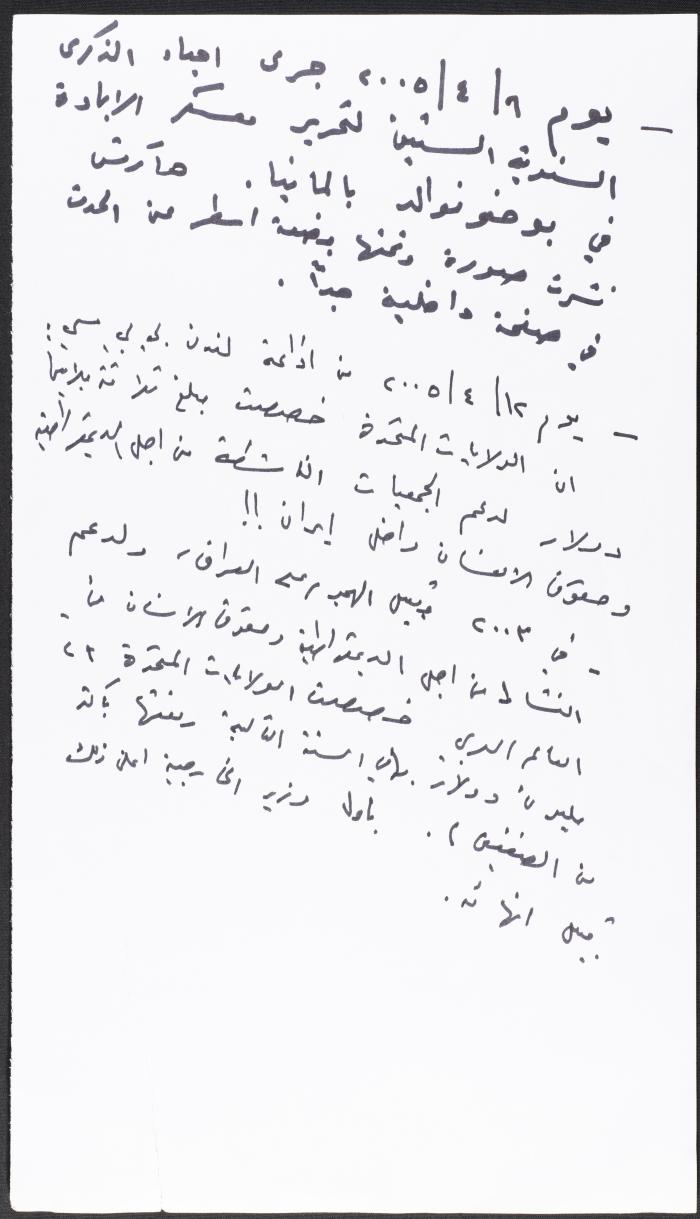 — يوم ٩/٤/٢٠٠٥ جرى احياء الذكرى
السنوية الستين لتحرير معسكر الابادة
في بوخنوالد بالمانيا. هآرتس
نشرت صورة وتحتها بضعة اسطر عن الحدث
في صفحة داخلية جداً.
— يوم ١٢/٤/٢٠٠٥ من اذاعة لندن بي بي سي:
ان الولايات المتحدة خصصت مبلغ ثلاثة ملايين
دولار لدعم الجمعيات الناشطة من اجل الديمقراطية
وحقوق الانسان داخل إيران!!
- في ٢٠٠٣ قبيل الهجوم على العراق، ولدعم
النشاط من اجل الديمقراطية وحقوق الانسان في
العالم العربي خصصت الولايات المتحدة ٢٩
مليون دولار. وفي السنة التالية رفعتها بأكثر
من الضعفين). باول وزير الخارجية اعلن ذلك
قبيل انهائه.